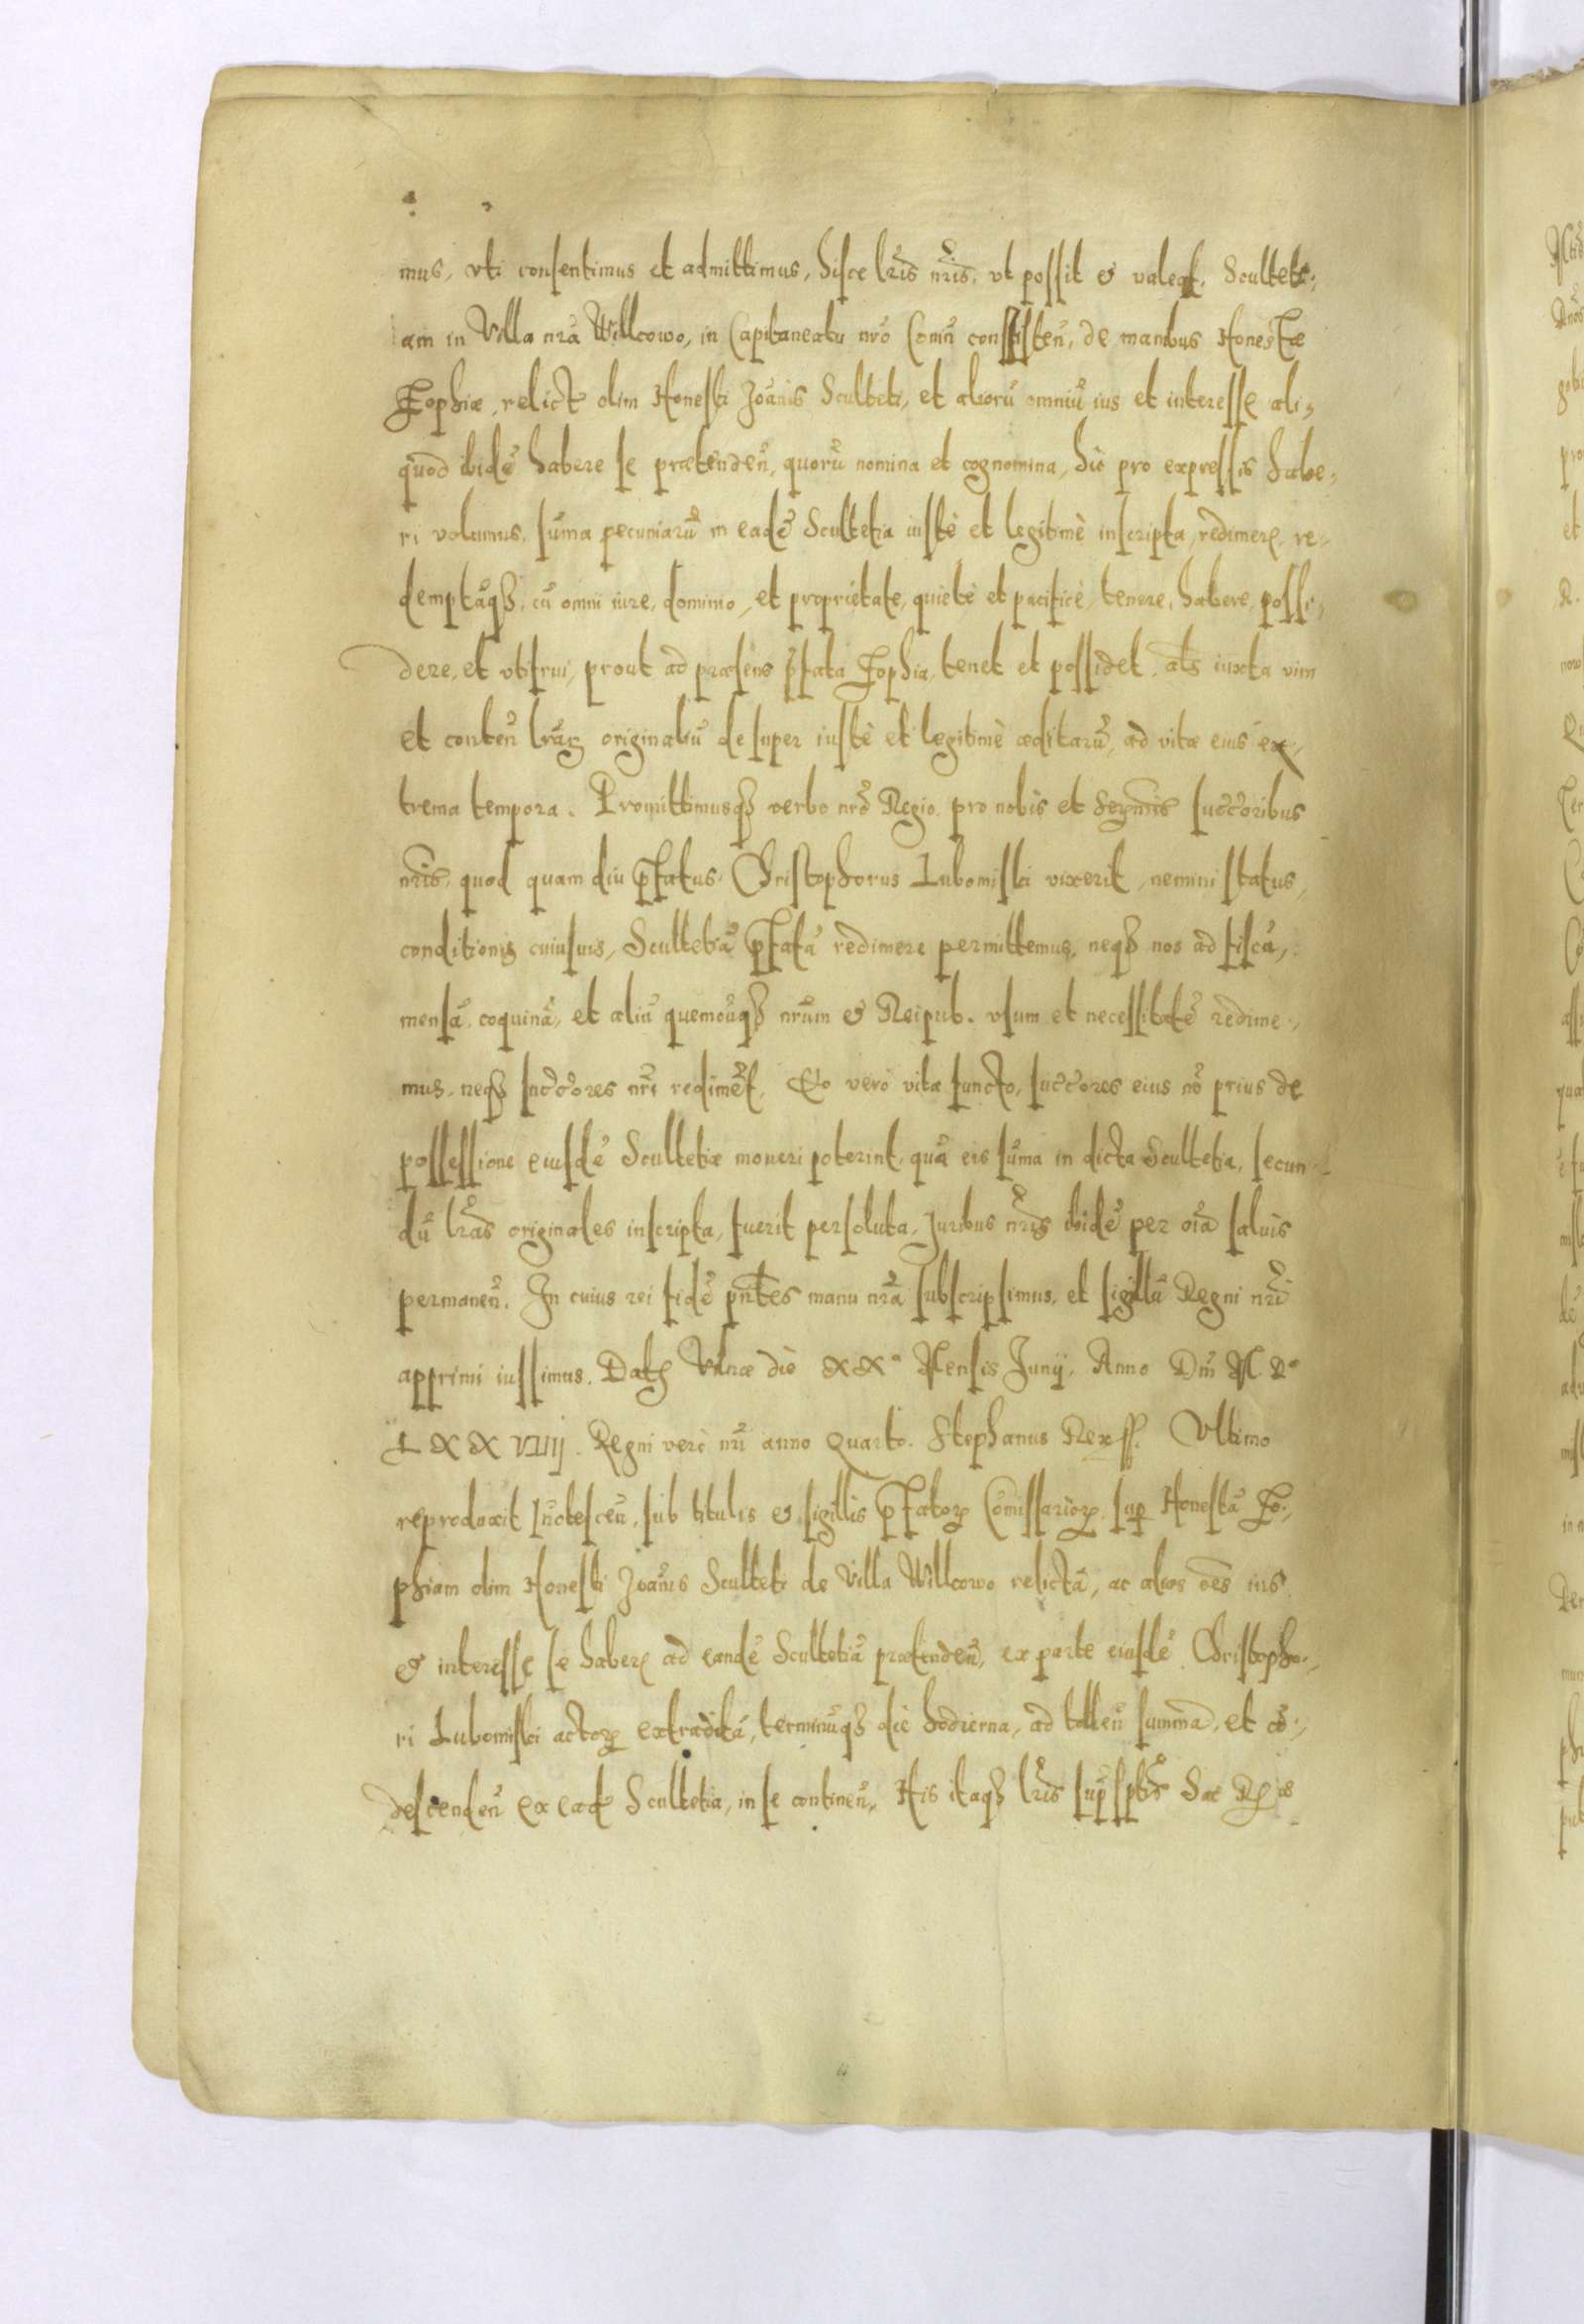 mus, vti consentimus et admittimus, hisce lr̃is nr̃is, vt possit & valeat, Sculteti-
am in Villa nr̃a Willcowo, in Capitaneatu nr̃o Conin̄ consisten̄, de manibus Honestæ
Zophiæ, relictæ olim Honesti Joānis Sculteti, et aliorū omniū ius et interesse ali-
quod ibidē habere se prætenden̄, quorū nomina et cognomina, hic pro expressis habe-
ri volumus, sum̄a pecuniarū in eadē Scultetia iustè et legitimè inscripta, redimere, re-
demptāqꝫ, cū omni iure, dominio, et proprietate, quietè et pacificè, tenere, habere, possi-
dere, et vtifrui, prout ad præsens p̄fata Zophia, tenet et possidet, als iuxta vim
et conten̄ lrāꝝ originaliū desuper iustè et legitimè æditarū, ad vitæ eius ex-
trema tempora. Promittimusqꝫ verbo nr̃o Regio pro nobis et Sern̄mis succ̄oribus
nr̃is, quod quam diu p̄fatus Christophorus Lubomiski vixerit, nemini status,
conditionis cuiusuis, Scultetiā p̄fatā redimere permittemus, neqꝫ nos ad fiscū,
mensā, coquinā, et aliū quemcūqꝫ nr̃um & Reipub. vsum et necessitatē redime-
mus, neqꝫ succ̄ores nr̃i rediment̄. Eo verò vita functo, succ̄ores eius nō prius de
possessione eiusdē Scultetiæ moueri poterint, quā eis sum̄a in dicta Scultetia, secun-
dū lr̃as originales inscripta, fuerit persoluta, Juribus nr̃is ibidē per oīa saluis
permanen̄. In cuius rei fidē pn̄tes manu nr̃a subscripsimus, et sigillū Regni nr̃i
apprimi iussimus. Datꝫ Vilnæ die XX° Mensis Junij, Anno Dn̄i M. D°
LXXVIIIJ. Regni verò nr̃i anno Quarto. Stephanus Rex ss. Vltimo
reproduxit In̄otescen̄, sub titulis & sigillis p̄fatoꝝ Com̄issarioꝝ, sup̲ Honestā Zo-
phiam olim Honesti Joānis Sculteti de Villa Willcowo relictā, ac alios oēs ius
& interesse se habere ad eandē Scultetiā prætenden̄, ex parte eiusdē Christopho-
ri Lubomiski actoꝝ extraditā, terminūqꝫ die hodierna, ad tollen̄ summā, et cō-
descenden̄ ex eadē Scultetia, in se continen̄. His itaqꝫ lr̃is sup̄sptis Sac